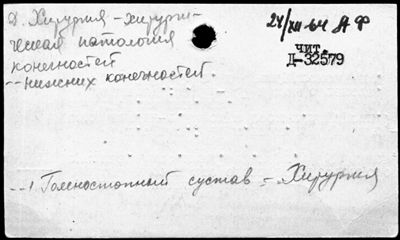 Д. Хирургия - хирурги-
ческая патология
конечностей
-- нижних конечностей.
24/XII-64 АФ
чит.
Д-32579
--! Голеностопный сустав - Хирургия